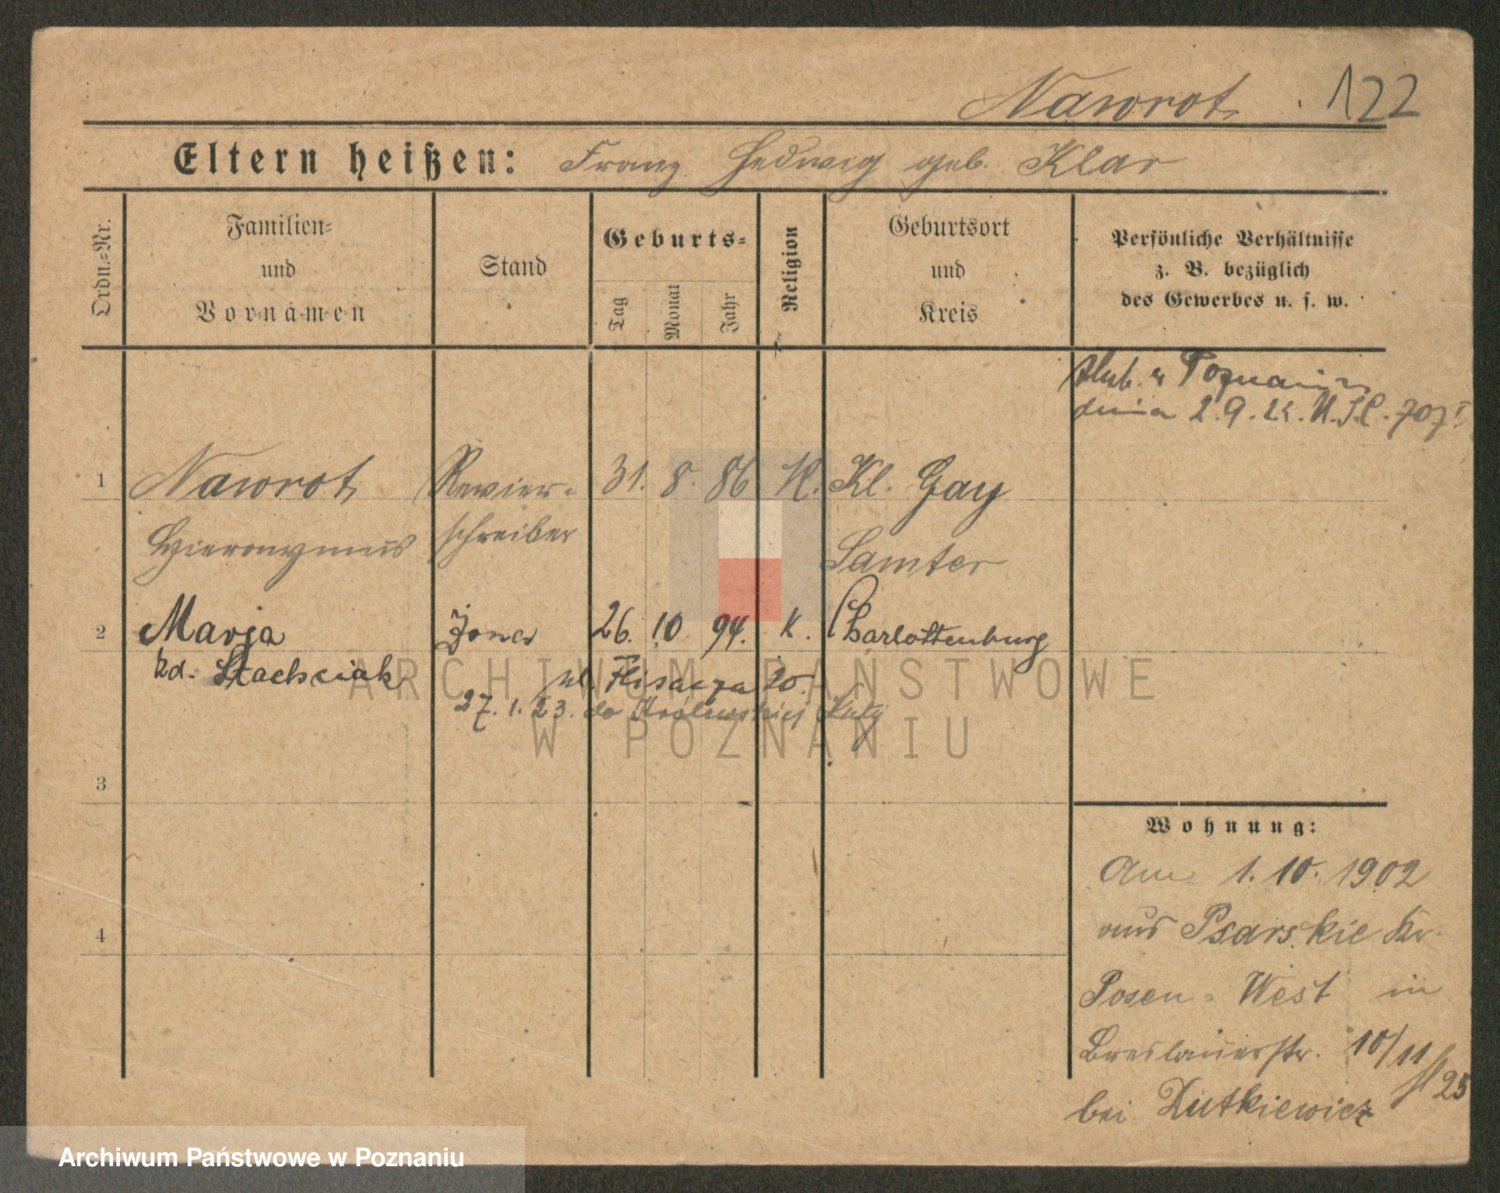 Nawrot. 122
Eltern heißen: Franz Hedwig geb. Klar
Ordn.-Nr.
Familien-
und
Vornamen
Stand
Geburts-
Tag
Monat
Jahr
Religion
Geburtsort
und
Kreis
Persönliche Verhältnisse
z. B. bezüglich
des Gewerbes u. s. w.
ślub. w Poznaniu
dnia 2.9.22. U.S.C. 707
1 Nawrot Revier- 31. 8. 86 K. Kl. Gay
Hieronymus schreiber Samter
2 Marja żona 26. 10 94. K. Charlottenburg
zd. Stachciak
ul. Flisacza 20.
27.1.23. do Królewskiej Huty
3
4
Wohnung:
Am 1.10.1902
aus Psarskie Kr.
Posen-West in
Breslauerstr. 10/11
bei Dutkiewicz 25
ARCHIWUM PAŃSTWOWE
W POZNANIU
Archiwum Państwowe w Poznaniu